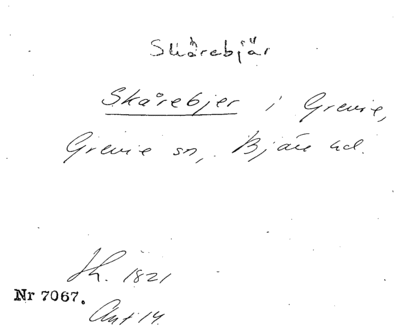 Skårebjär
Skårebjer i Grevie,
Grevie sn, Bjäre hd.
Jh. 1821
Nr 7067.
Ant 14.